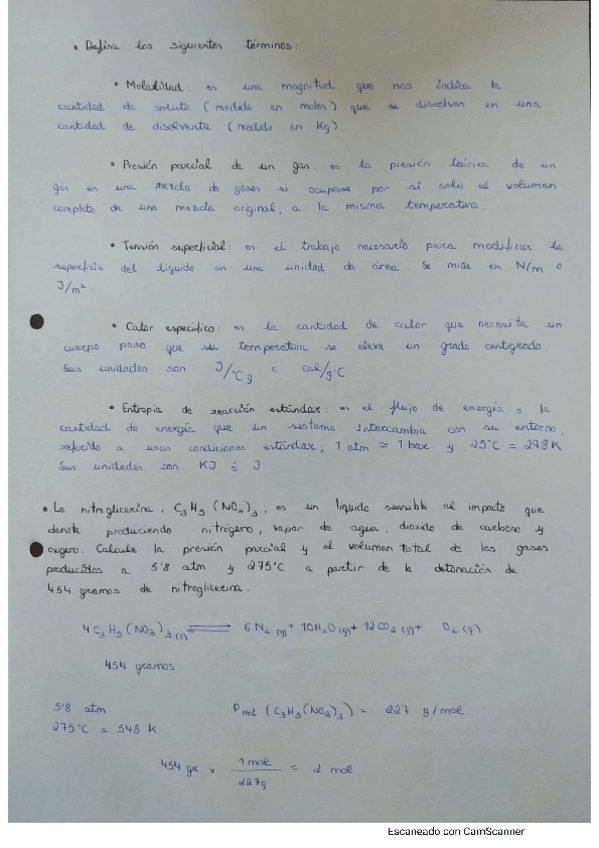 • Defina los siguientes términos:
• Molalidad: es una magnitud que nos indica la
cantidad de soluto (medido en moles) que se disuelven en una
cantidad de disolvente (medido en Kg)
• Presión parcial de un gas: es la presión teórica de un
gas en una mezcla de gases si ocupase por si solo el volumen
completo de una mezcla original, a la misma temperatura.
• Tensión superficial: es el trabajo necesario para modificar la
superficie del líquido en una unidad de área. Se mide en N/m o
J/m².
• Calor específico: es la cantidad de calor que necesita un
cuerpo para que su temperatura se eleve un grado centígrado.
Sus unidades son J/ºC g ó cal/g·C
• Entropía de reacción estándar: es el flujo de energía o la
cantidad de energía que un sistema intercambia con su entorno,
referido a unas condiciones estándar, 1 atm ≃ 1 bar y 25°C = 298 K
Sus unidades son KJ ó J
• La nitroglicerina, C₃H₅(NO₃)₃, es un líquido sensible al impacto que
detona produciendo nitrógeno, vapor de agua, dióxido de carbono y
oxígeno. Calcule la presión parcial y el volumen total de los gases
producidos a 5'8 atm y 275°C a partir de la detonación de
454 gramos de nitroglicerina.
4 C₃H₅(NO₃)₃ (l) ⇌ 6 N₂ (g) + 10 H₂O (g) + 12 CO₂ (g) + O₂ (g)
454 gramos
5'8 atm Pmol (C₃H₅(NO₃)₃) = 227 g/mol
275°C = 548 K
454 gr × 1 mol / 227g = 2 mol
Escaneado con CamScanner